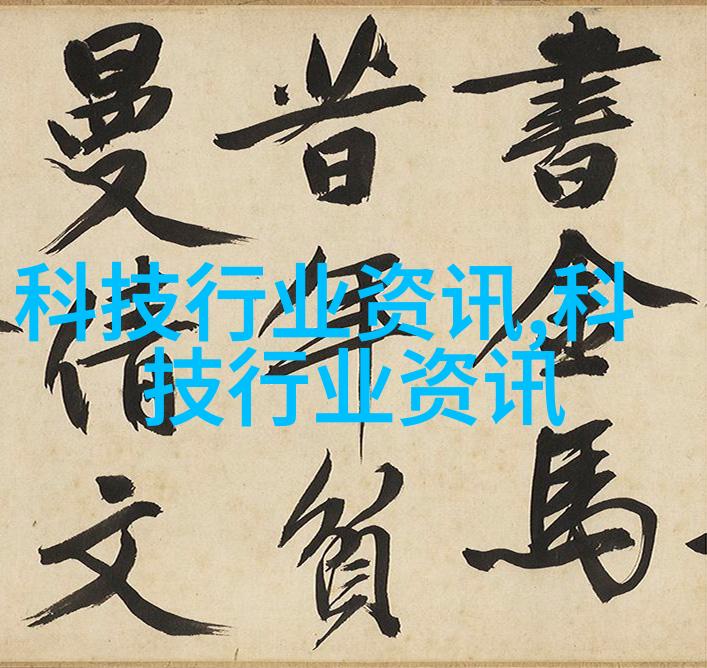 科技行业资讯,科
技行业资讯
書金馬
昔年負
曼倩文